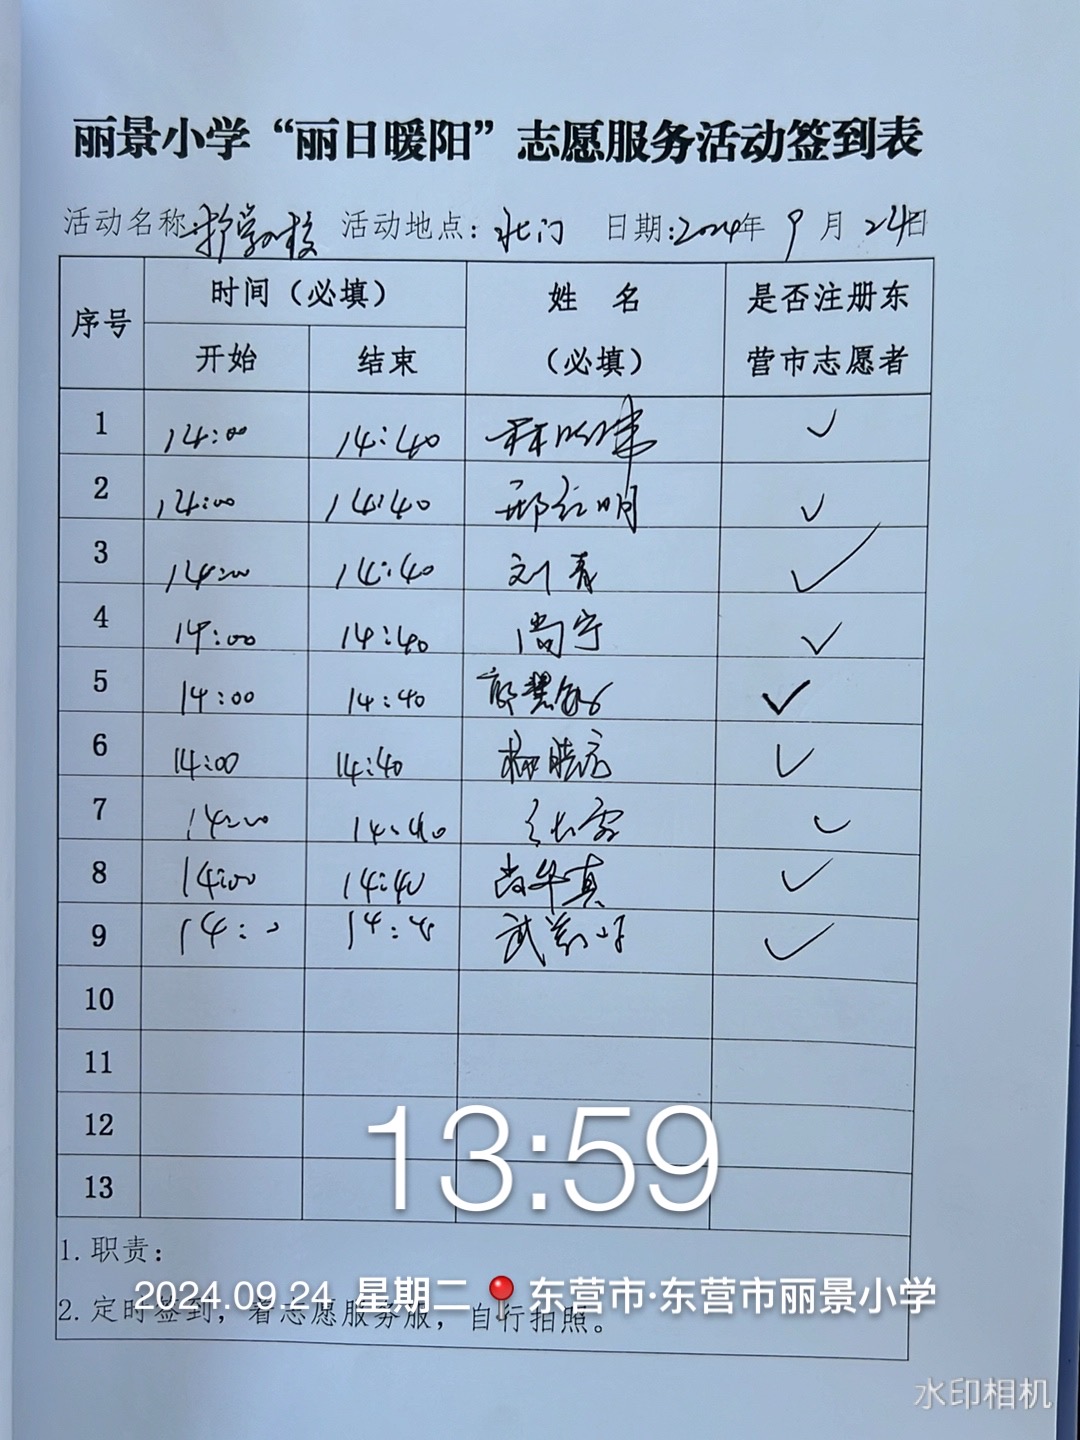 丽景小学“丽日暖阳”志愿服务活动签到表
活动名称:护学入校 活动地点：北门 日期:2024年 9 月 24日
序号 时间（必填） 姓 名 是否注册东
开始 结束 （必填） 营市志愿者
1 14:00 14:40 ✓
2 14:00 14:40 邢红明 ✓
3 14:00 14:40 刘青 ✓
4 14:00 14:40 尚宁 ✓
5 14:00 14:40 ✓
6 14:00 14:40 ✓
7 14:00 14:40 张霞 ✓
8 14:00 14:40 尚华真 ✓
9 14: 14: 武 ✓
10
11
12
13
13:59
1. 职责：
2024.09.24 星期二 东营市·东营市丽景小学
2. 定时签到，着志愿服务服，自行拍照。
水印相机